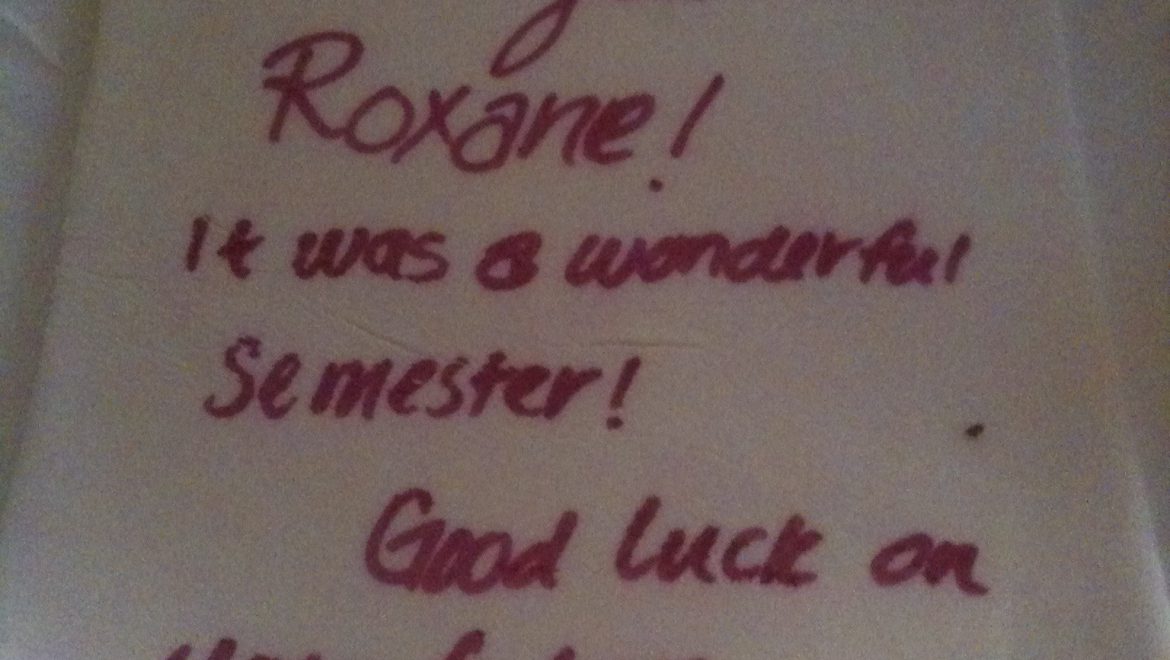 Roxane!
It was a wonderful
Semester!
Good luck on